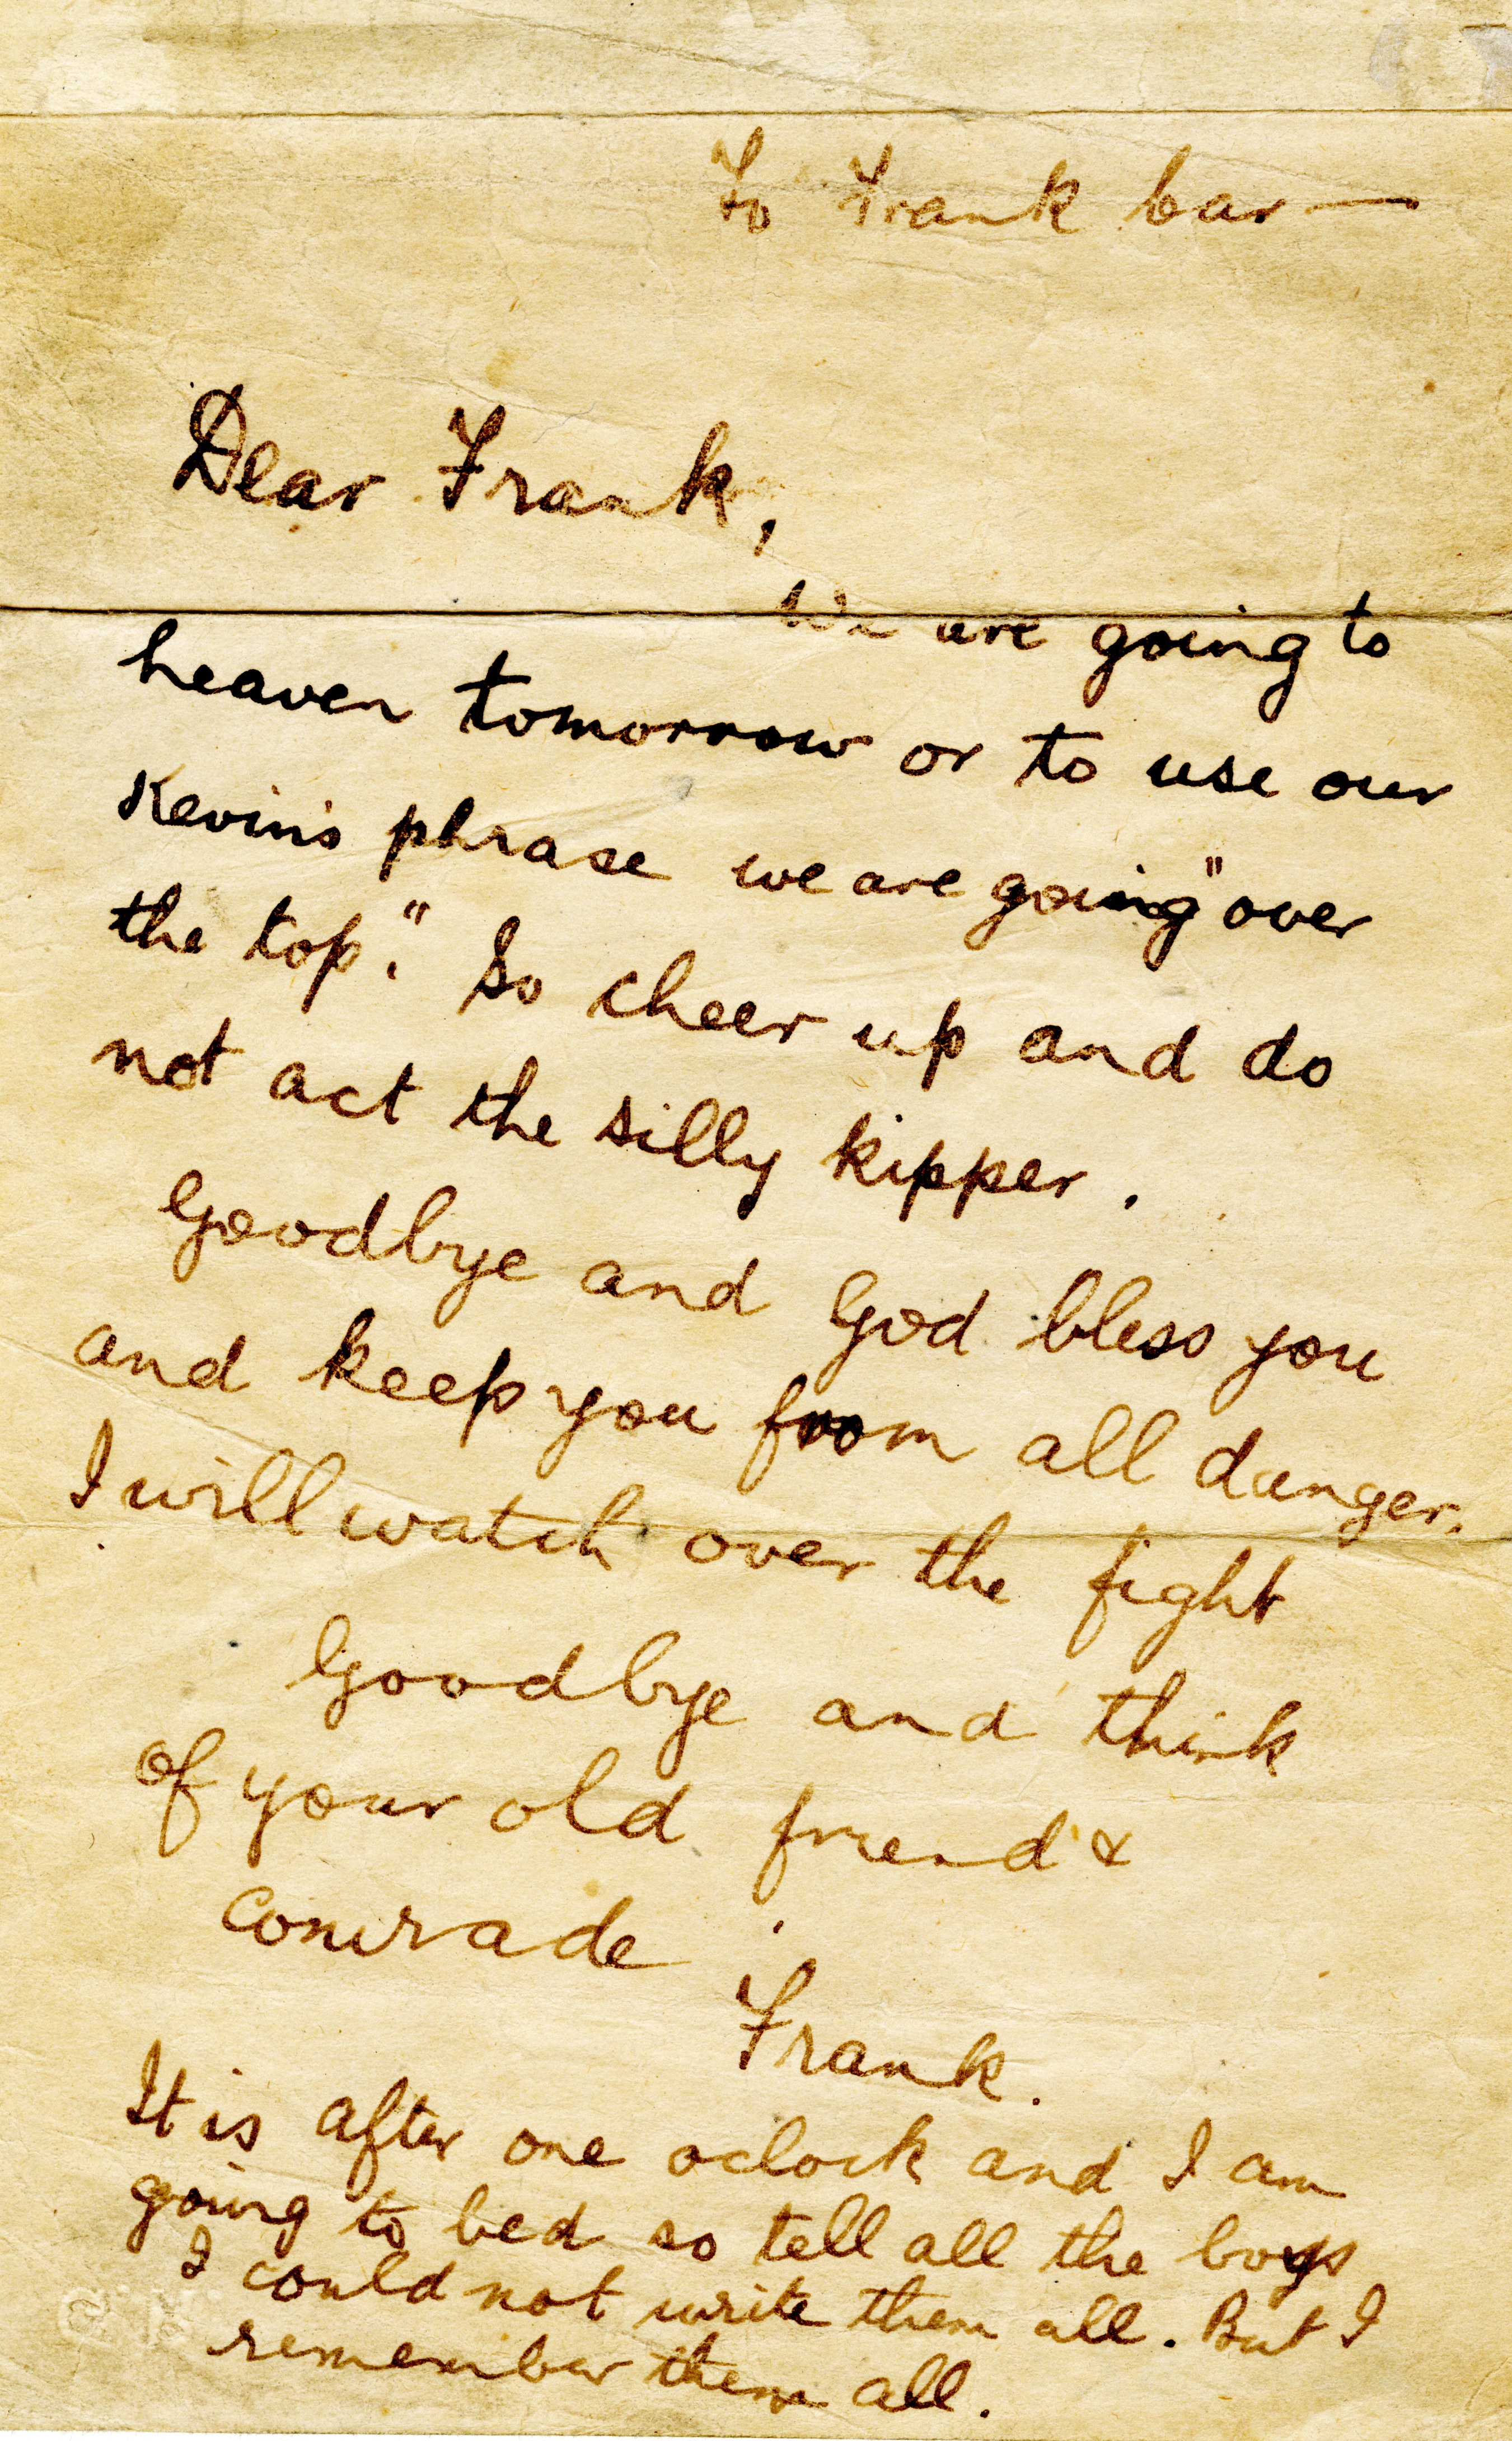 To Frank Car—
Dear Frank,
We are going to
heaven tomorrow or to use our
Kevin's phrase we are going "over
the top." So cheer up and do
not act the silly kipper.
Goodbye and God bless you
and keep you from all danger.
I will watch over the fight
Goodbye and think
of your old friend &
comrade
Frank.
It is after one oclock and I am
going to bed so tell all the boys
I could not write them all. But I
remember them all.